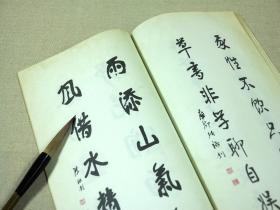 我性不飲只
草書非學聊自悟
雨添山氣
風借水精